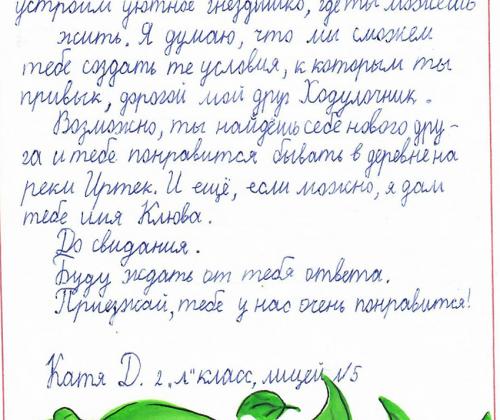 устроим уютное гнёздышко, где ты можешь
жить. Я думаю, что мы сможем
тебе создать те условия, к которым ты
привык, дорогой мой друг Ходулочник.
Возможно, ты найдёшь себе нового дру-
га и тебе понравится бывать в деревне на
реки Иртек. И ещё, если можно, я дам
тебе имя Клюва.
До свидания.
Буду ждать от тебя ответа.
Приезжай, тебе у нас очень понравится!
Катя Д. 2 "Л" класс, лицей №5